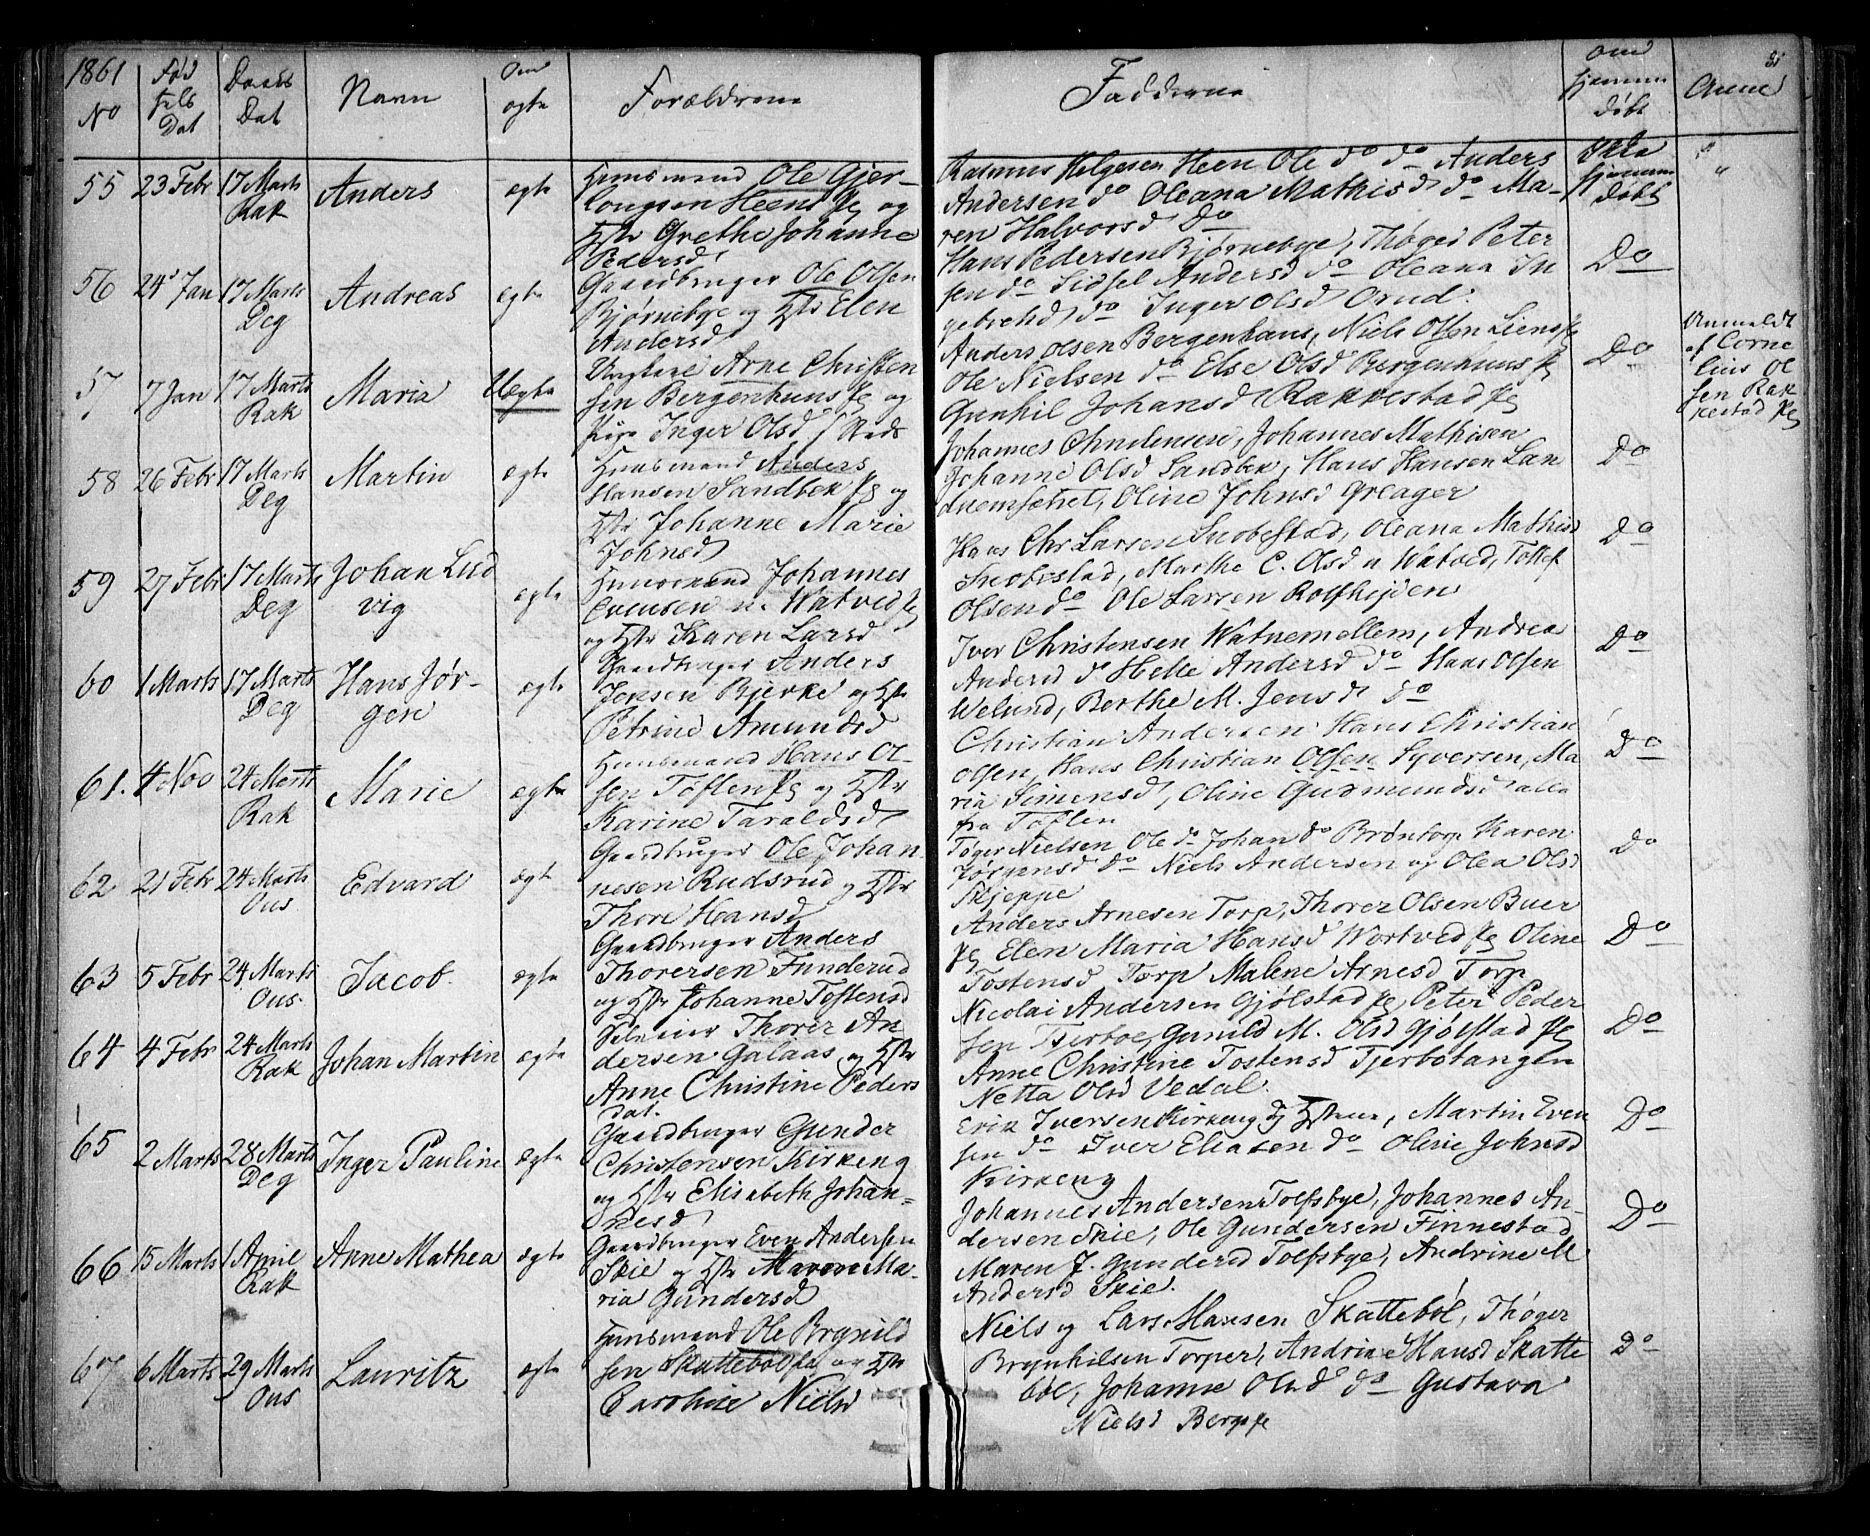 1861
No
Fød
sels
Dat
Daabs
Dat
Navn
Om
ægte
Forældrene
Fadderne
Om
hjemme
døbt
Anm
31
55 23 Febr 17 Marts
Rak
Anders
ægte
Huusmand Ole Gjer-
Heens Pl og
Hstr Grethe Johanne
Pedersd
Rasmus Helgesen Heen Ole do do Anders
Andersen do Oleana Mathisd do Ma-
ren Halvorsd do
Ikke
hjemme
døbt
"
56 24 Jan 17 Marts
Deg
Andreas
ægte
Gaardbruger Ole Olsen
Bjørnebye og Hstr Elen
Andersd
Hans Pedersen Bjørnebye, Thøger Peter
sen do Sidsel Andersd do Oleana In
gebrehd do Inger Olsd Orud.
Do
57 7 Jan 17 Marts
Rak
Maria
Uægte
Ungkarl Arne Christen
sen Bergenhuus Pl og
Pige Inger Olsd
Anders Olsen Bergenhuus, Niels Olsen Liens Pl
Ole Nielsen do Else Olsd Bergenhuus Pl
Gunhil Johansd Rakkestad Pl
Do
Anmeldt
af Corne
lius Ol
sen Rak
kestad Pl
58 26 Febr 17 Marts
Deg
Martin
ægte
Huusmand Anders
Hansen Sandbek Pl og
Hstr Johanne Marie
Johnsd
Johannes Christensen, Johannes Mathisen
Johanne Olsd Sandbek, Hans Hansen Lan
Oline Johnsd Greager
Do
59 27 Febr 17 Marts
Deg
Johan Lud
vig
ægte
Huusmand Johannes
Evensen n. Watved Pl
og Hstr Karen Larsd
Hans Chr Larsen Snobestad, Oleana Mathisd
Snobestad, Marthe C. Olsd n Watved, Tollef
Olsen do Ole Larsen Rolfhejden
Do
60 1 Marts 17 Marts
Deg
Hans Jør-
gen
ægte
Gaardbruger Anders
Jensen Bjerke og Hstr
Petrine Amundsd
Iver Christensen Watnemellem, Andrea
Andersd do Helle Andersd do Hans Olsen
Welund, Berthe M. Jensd do
Do
61. 4 Nov 24 Marts
Rak
Marie
ægte
Huusmand Hans Ol-
sen Toften Pl og Hstr
Karine Taraldsd
Christian Andersen Hans Christian
Olsen, Hans Christian Olsen Syversen, Ma
ria Simensd, Oline Gudmundsd alle
fra Toften
Do
62 21 Febr 24 Marts
Ous
Edvard
ægte
Gaardbruger Ole Johan-
nesen Rudsrud og Hstr
Thore Hansd
Tøger Nielsen Ole do Johan do Brøntorp Karen
Jørgensd do Niels Andersen og Olea Olsd
Skjeppe
Do
63 5 Febr 24 Marts
Ous.
Jacob.
ægte
Gaardbruger Anders
Thorersen Funderud
og Hstr Johanne Toftensd
Anders Arnesen Torp, Thorer Olsen Buer
Pl Elen Maria Hansd Wortved Pl Oline
Tostensd Torp Malene Arnesd Torp
Do
64 4 Febr 24 Marts
Rak
Johan Martin
ægte
Thorer An-
dersen Galaas og Hstr
Anne Christine Peders
Dat.
Nicolai Andersen Gjølstad Pl, Peter Peder
sen Tjerboe Gunild M. Olsd Gjølstad Pl
Anne Christine Tostensd Tjerbotangen
Netta Olsd Vedal.
Do
65 2 Marts 28 Marts
Deg
Inger Pauline
ægte
Gaardbruger Gunder
Christensen Kirkeng
og Hstr Elisabeth Johan-
nesd
Erik Iversen Kirkeng og Hstrue, Martin Even
sen do Iver Eliasen do Oline Johnsd
Kirkeng
Do
66 15 Marts 1 April
Rak
Anne Mathea
ægte
Gaardbruger Even Andersen
Skie og Hstr Maren Ma-
ria Gundersd
Johannes Andersen Tolfsbye, Johannes An-
dersen Skie, Ole Gundersen Finnestad
Maren J. Gundersd Tolfsbye, Andrine M
Andersd Skie.
Do
67 6 Marts 29 Marts
Ous
Lauritz
ægte
Huusmand Ole Brynild
sen Skattebøl Pl og Hstr
Caroline Nielsd
Niels og Lars Hansen Skattebøl, Thøger
Brynhilsen Torper, Andria Hansd Skatte
bøl, Johanne Olsd do Gustava
Nielsd Bergs Pl
Do